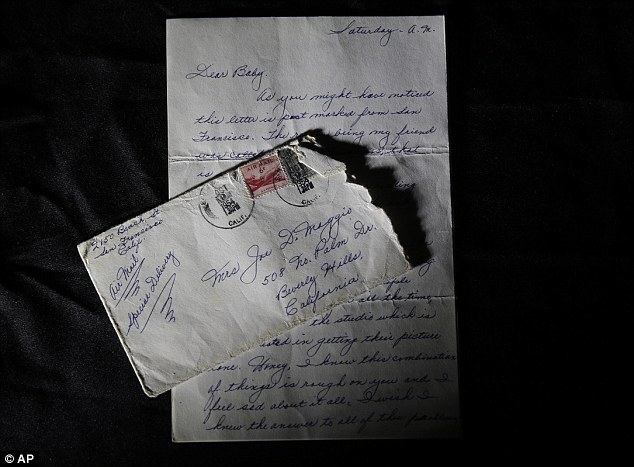 Saturday - A.M.
Dear Baby,
As you might have noticed
this letter is post marked from San
Francisco. The being my friend
was
as
AIR MAIL
6¢
CALIF.
CALIF.
2150 Beach St
San Francisco
Calif
Air Mail
Special Delivery
Mrs Joe Di Maggio
508 No. Palm Dr.
Beverly Hills
California
all the time,
the studio which is
in getting their picture
one. Honey, I know this combination
of things is rough on you and I
feel sad about it all. I wish I
knew the answer to all of the problems
© AP